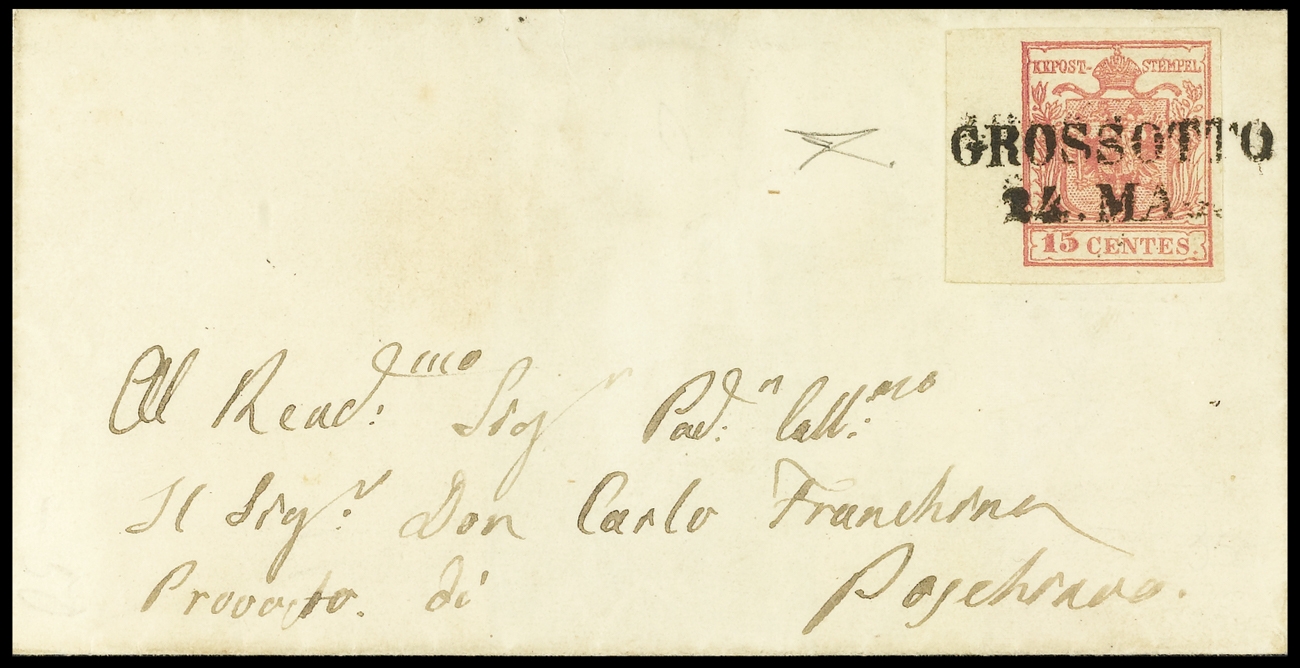 KKPOST-STEMPEL
GROSSOTTO
24. MA
15 CENTES.
Al Revd:mo Sigr Pad:n Coll:mo
Il Sig:r Don Carlo Franchina
Provosto. di Poschiavo.